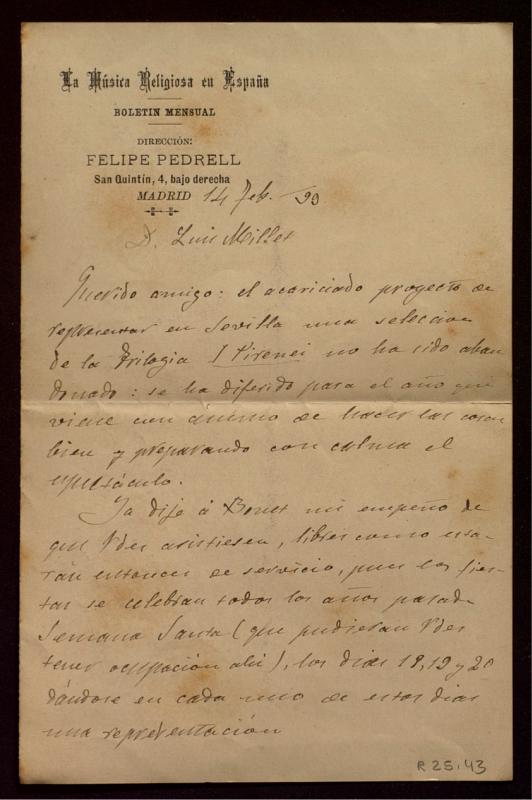 La Música Religiosa en España
BOLETIN MENSUAL
DIRECCIÓN:
FELIPE PEDRELL
San Quintín, 4, bajo derecha
MADRID 14 Feb. -99
D. Luis Millet
Querido amigo: el acariciado proyecto de
representar en Sevilla una seleccion
de la Trilogia I Pirenei no ha sido aban
donado: se ha diferido para el año que
viene con ánimo de hacer las cosas
bien y preparando con calma el
espectáculo.
Ya dije á Bonet mi empeño de
que Vdes asistiesen, libres como esta
rán entonces de servicio, pues las fies
tas se celebran todos los años pasada
Semana Santa (que pudieran Vdes
tener ocupación ahí), los dias 18, 19 y 20
dándose en cada uno de estos dias
una representación
R 25.43